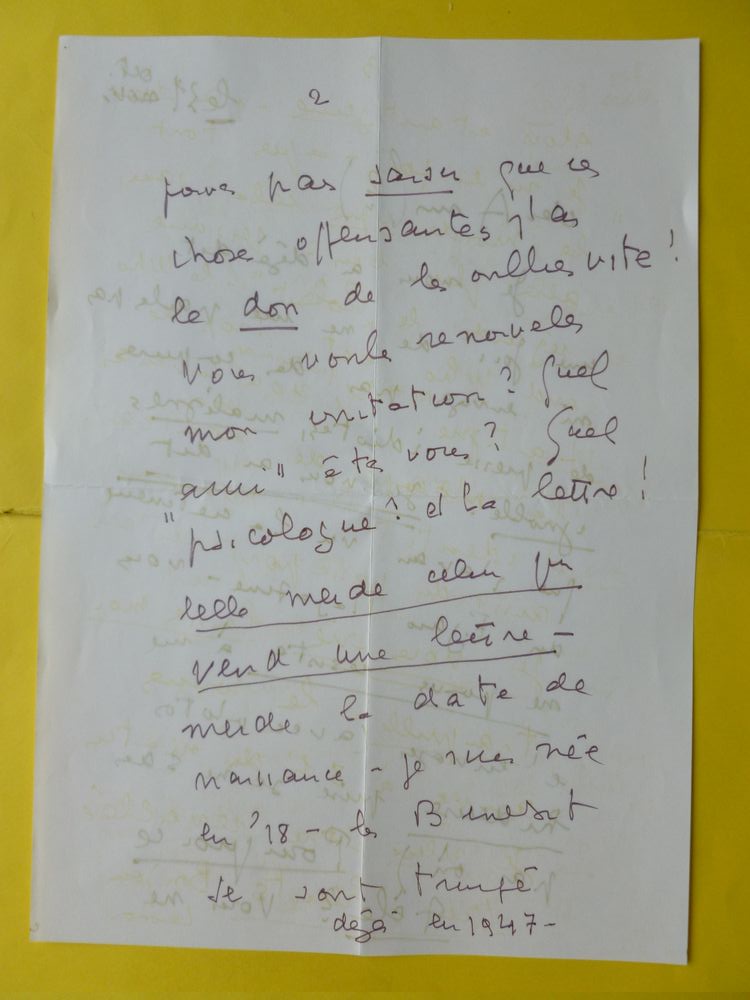 2
pas savoir que ces
choses offensantes j'ai
le don de les oublier vite !
Vous voulez renouveler
mon irritation ? Quel
"ami" êtes vous ? Quel
"psicologue" ? et la lettre !
telle merde celui qui
vend une lettre –
merde la date de
naissance – je suis née
en '18 – les Benezit
se sont trompé
déjà en 1947 –